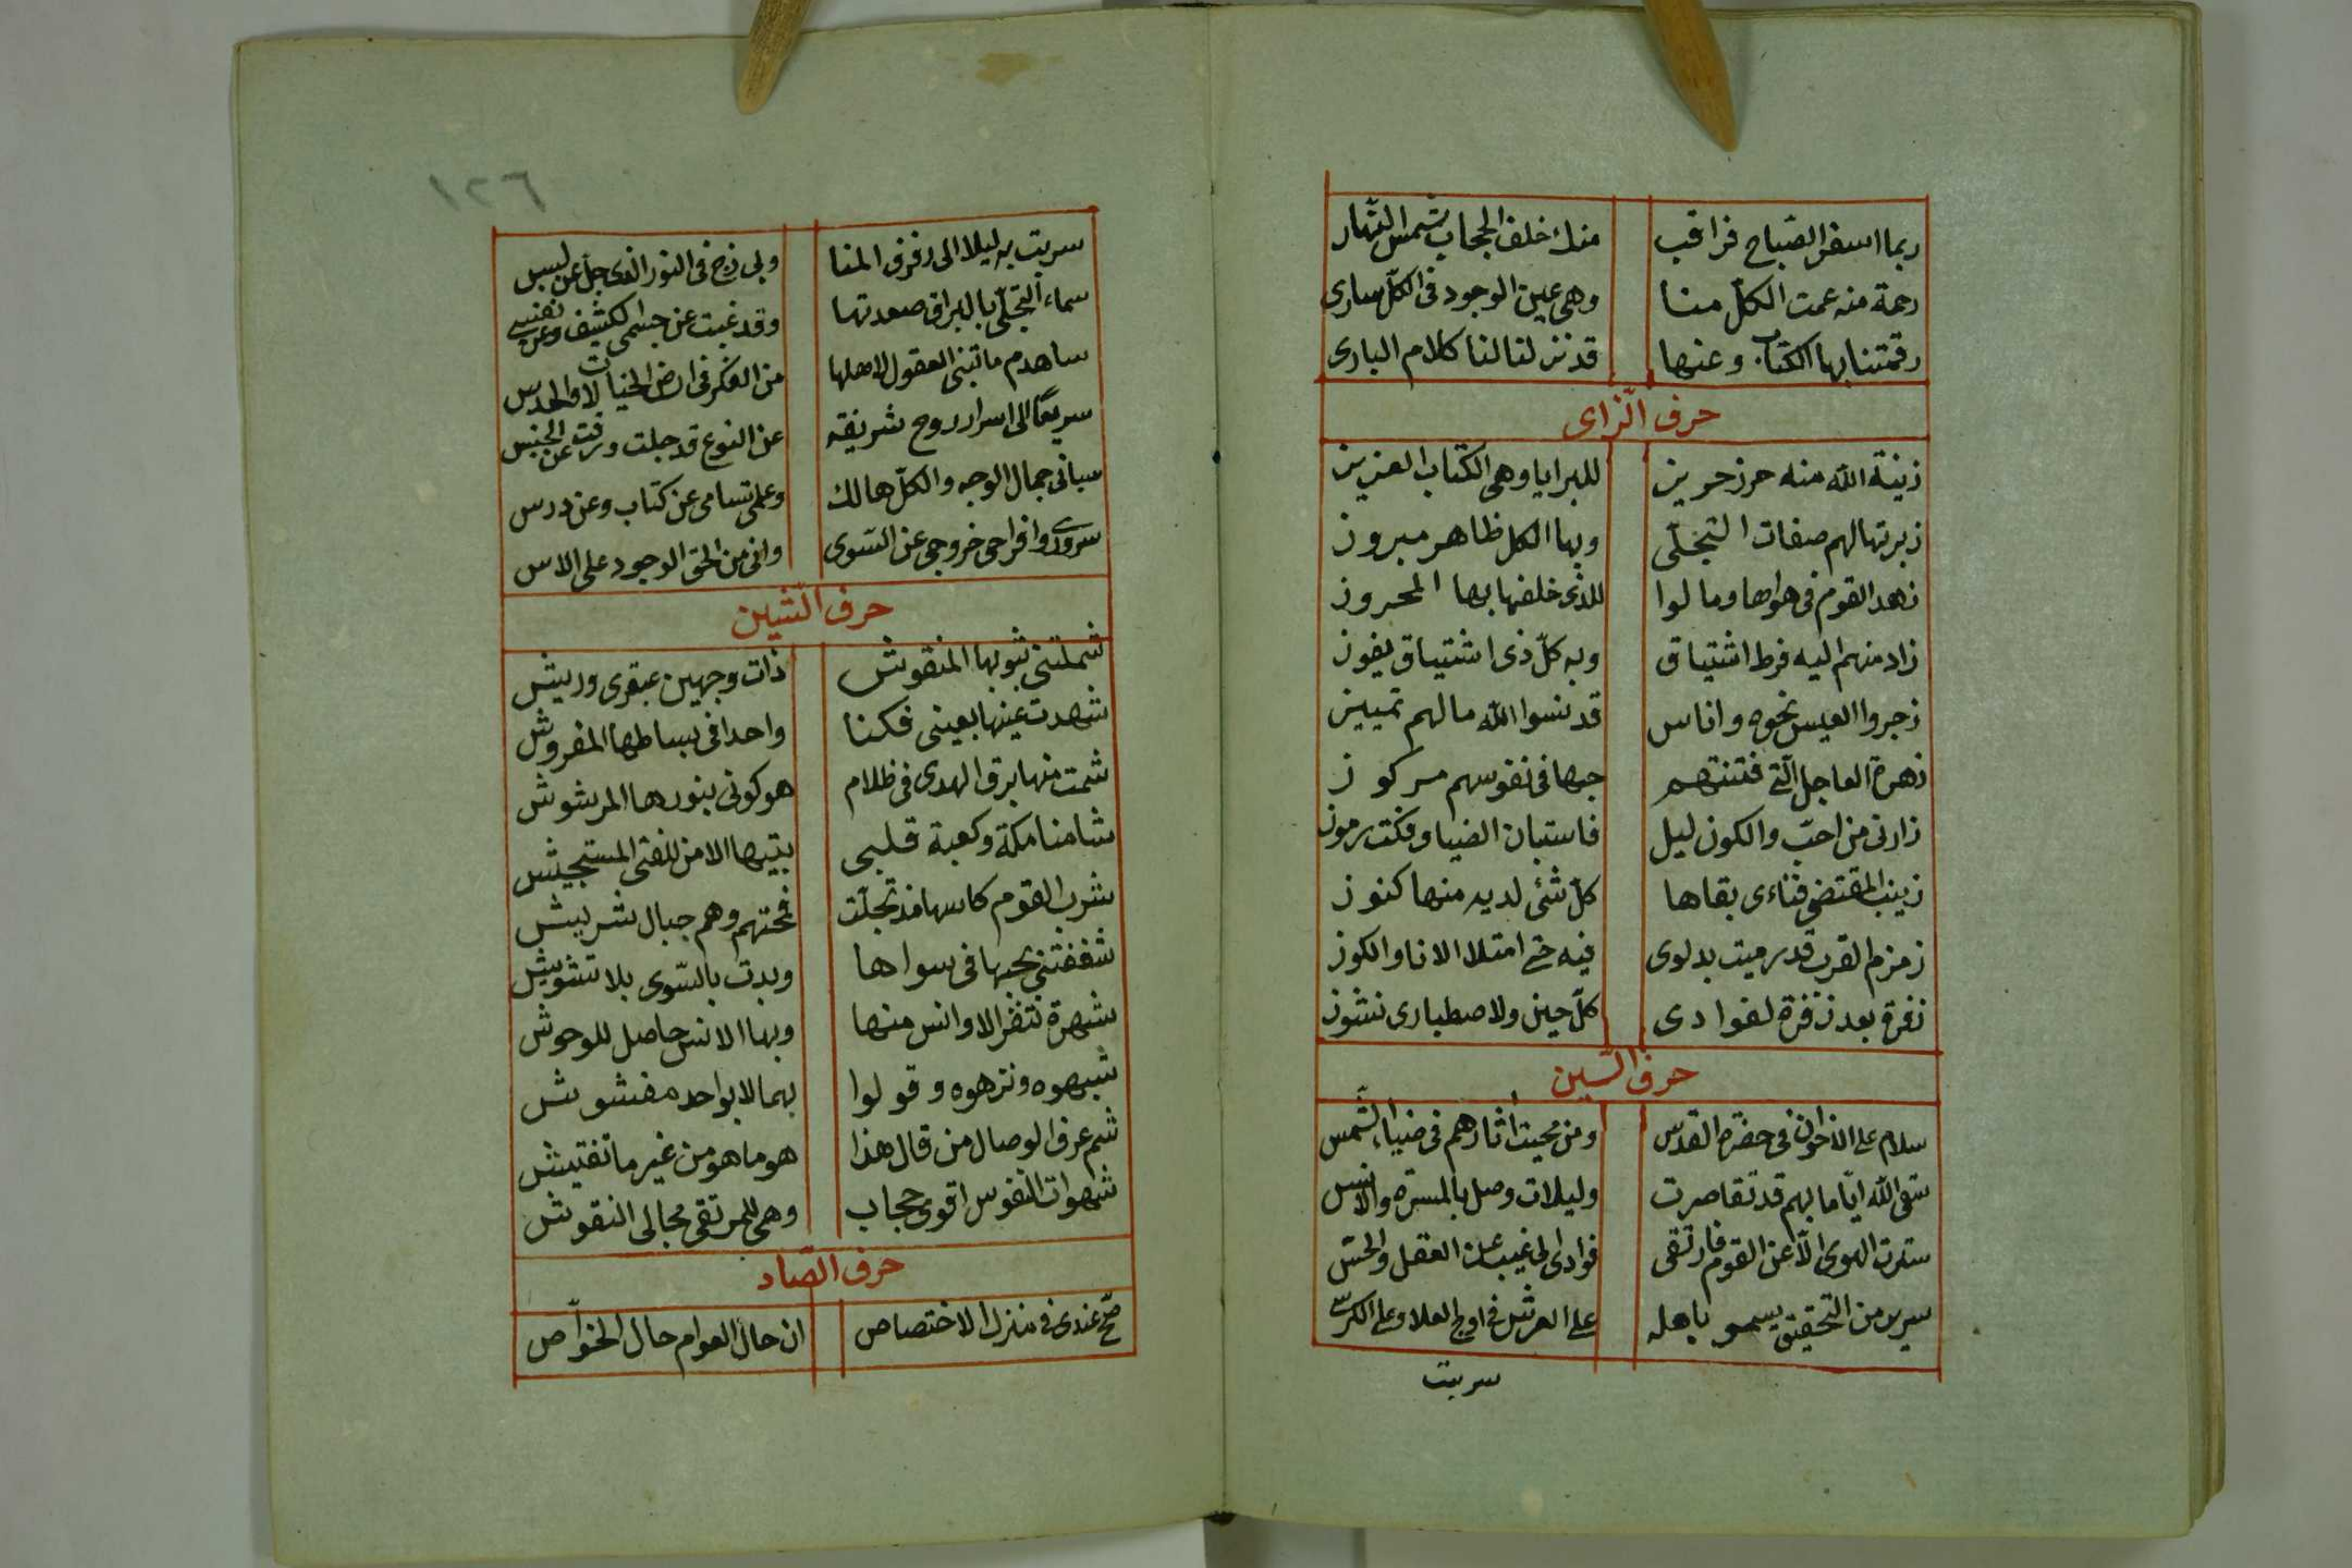 ربما اسفر الصباح فراقب منك خلف الحجاب شمس النهار
رحمة منه عمت الكل منا وهى عين الوجود فى الكل سارى
رقمتنا بها الكتاب وعنها قد نزلنا لنا كلام البارى
حرف الزاى
زينة الله منه حرز حريز للبرايا وهى الكتاب العزيز
زبرتها لهم صفات التجلّى وبها الكل ظاهر مبروز
زهد القوم فى هواها ومالوا للذى خلفها بها المحروز
زاد منهم اليه فرط اشتياق وبه كلّ ذى اشتياق يفوز
زجروا العيس نحوه واناس قد نسوا الله مالهم تمييز
زهرة العاجل التى فتنتهم حبها فى نفوسهم مركوز
زارنى من احبّ والكون ليل فاستبان الضيا وفكت رموز
زينب المقتضى فناءى بقاها كلّ شئ لديه منها كنوز
زمزم القرب قد رميت بدلوى فيه حتى امتلا الانا والكوز
زفرة بعد زفرة لفوادى كلّ حين ولاصطبارى نشوز
حرف السين
سلام على الاخوان فى حضرة القدس ومن محيت اثارهم فى ضياء الشمس
سقى الله ايّاما بهم قد تقاصرت وليلات وصل بالمسرة والانس
سترت الهوى الّا عن القوم فارتقى فوادى الى غيب عن العقل والحسّ
سرير من التحقيق يسمو باهله على العرش فى اوج العلا وعلى الكرسى
سريت
١٢٦
سريت به ليلا الى رفرف المنا ولى زج فى النور الذى جلّ عن لبس
سماء التجلّى بالبراق صعدتها وقد غبت عن جسمى الكثيف وعن نفسى
ساهدم ما تبنى العقول لاهلها من الفكر فى ارض الخيالات والحدس
سريعًا الى اسرار روح شريفة عن النوع قد جلت ورقت عن الجنس
سبانى جمال الوجه والكلّ هالك وعلمى تسامى عن كتاب وعن درس
سرورى وافراحى خروجى عن السّوى وانى من الحق الوجود على الاس
حرف الشين
شملتنى ثوبها المنقوش ذات وجهين عبقرى وريش
شهدت عينها بعينى فكنا واحدا فى بساطها المفروش
شمت منها برق الهدى فى ظلام هو كونى بنورها المرشوش
شامنا مكة وكعبة قلبى بيتها الامن للفتى المستجيش
شرب القوم كاسها مذ تجلّت فمحتهم وهم جبال شريش
شغفتنى بحبها فى سواها وبدت بالسّوى بلا تشويش
شهرة تنفر الاوانس منها وبها الانس حاصل للوحوش
شبهوه ونزهوه وقولوا بهما لا بواحد مغشوش
شم عرف الوصال من قال هذا هو ما هو من غير ما تفتيش
شهوات النفوس اقوى حجاب وهى للمرتقى مجالى النقوش
حرف الصّاد
صحّ عندى فى منزل الاختصاص ان حال العوام حال الخواّص